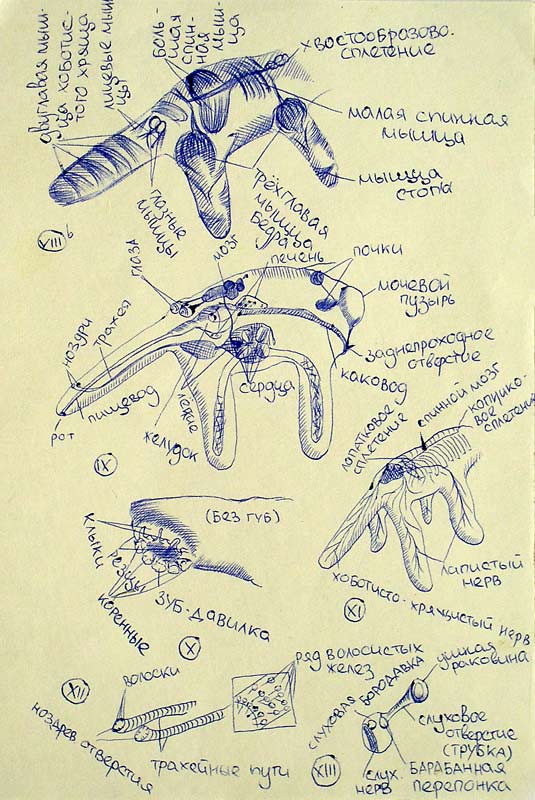 двуглавая мыш-
ца хоботис-
того хряща
лицевые мыш
цы
боль-
шая
спин-
ная
мыш-
ца
хвостообразово.
сплетение
малая спинная
мышца
мышца
стопы
трёхглавая
мышца
бедра
глазные
мышцы
XIII
глаза
мозг
печень
почки
мочевой
пузырь
ноздри
трахея
заднепроходное
отверстие
каковод
пищевод
рот
лёгкие
сердца
желудок
IX
лопатковое
сплетение
спинной мозг
копчико-
вое
сплетение
(Без губ)
клыки
резцы
коренные
зуб-давилка
X
лапистый
нерв
хоботисто-хрящистый нерв
XI
XII
волоски
ноздрев. отверстия
трахейные пути
ряд волосистых
желез
слуховая
бородавка
ушная
раковина
слуховое
отверстие
(трубка)
слух.
нерв
барабанная
перепонка
XIII